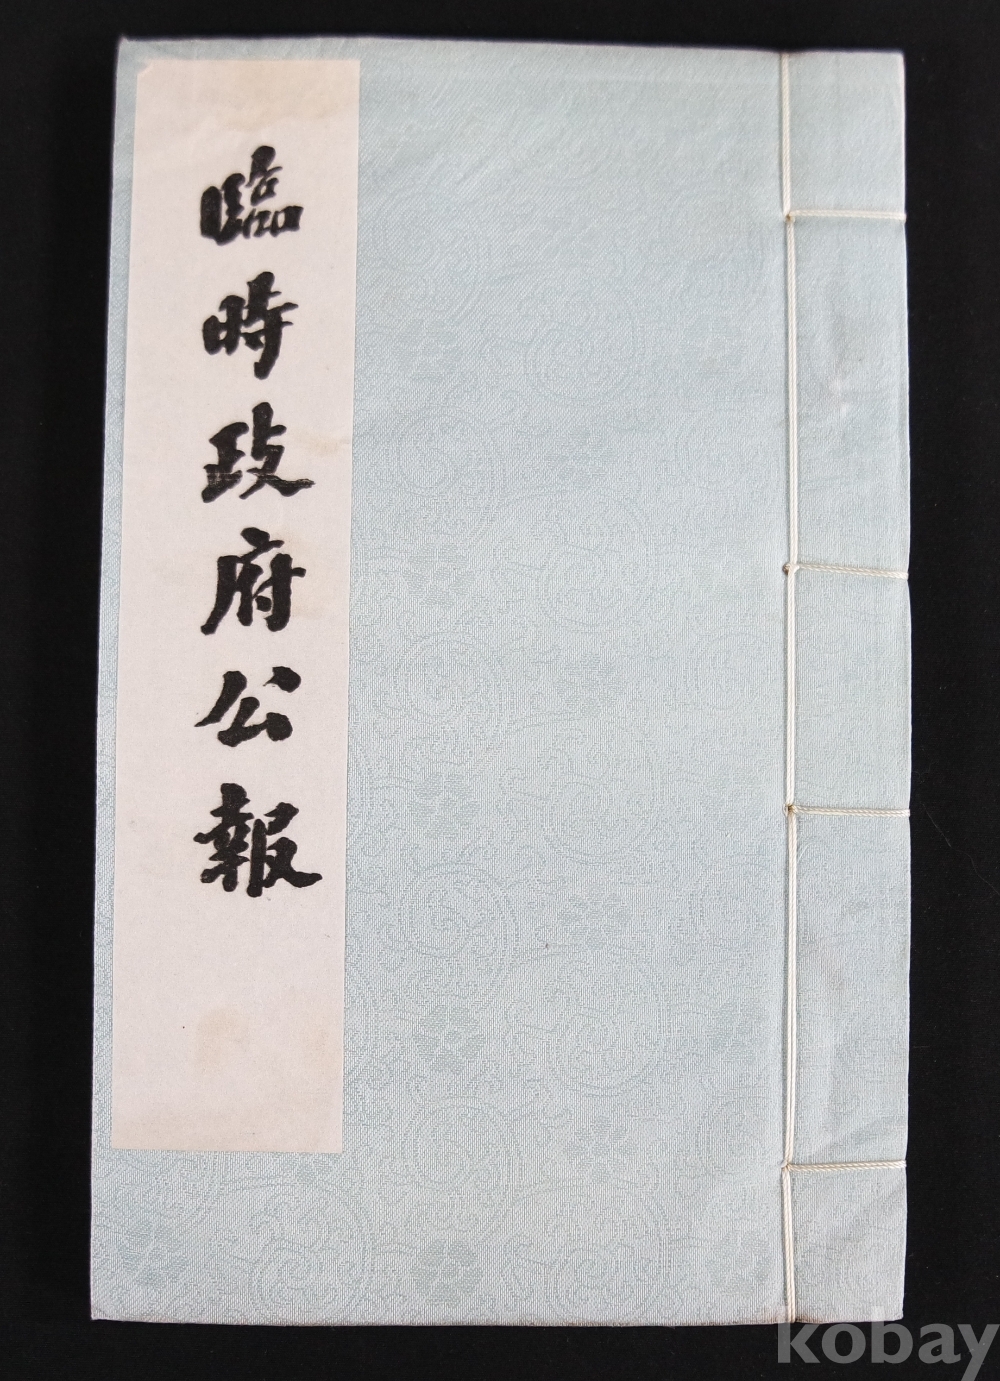 臨時政府公報
kobay